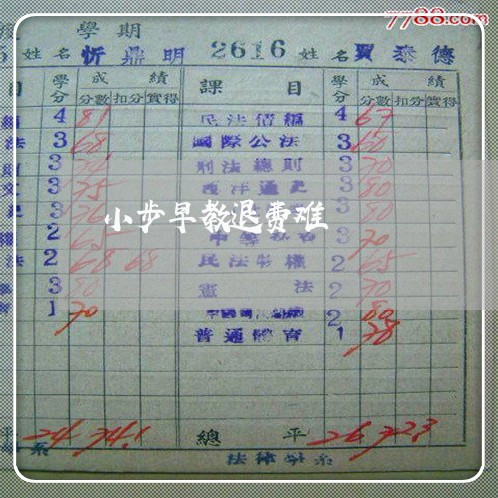 7788.com
學期
姓名 忻鼎明 2616 姓名 賈泰德
目 學分 成績 分數 扣分 實得 課目 學分 成績 分數 扣分 實得
編 4 81 民法債編 4 67
法 3 68 國際公法 3 60
則 3 刑法總則 3 70
文 3 75 西洋通史 3 80
史 3 3 80
小步早教退费难
2 65 3 70
法 2 68 68 民法物權 2 65
3 80 憲法 2 70
育 1 70 2 80
普通體育 1 78
平 24 74.1 總平 26 72.3
系 法律學系